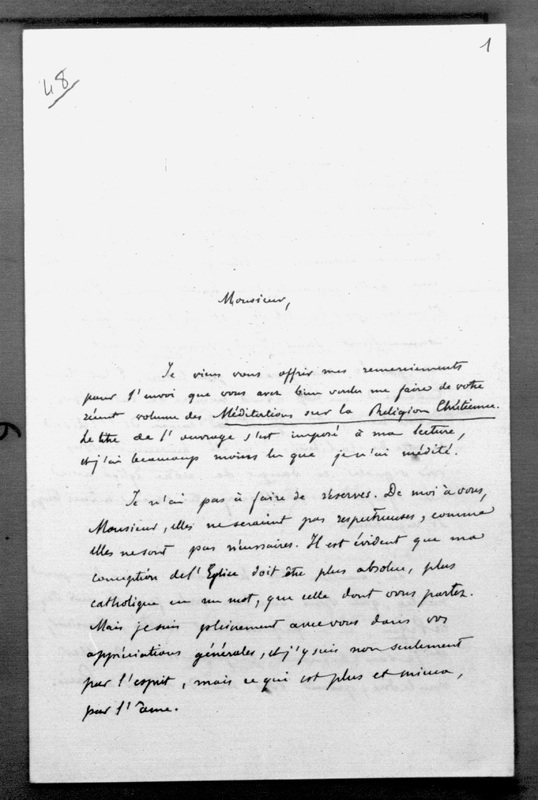 1
48
Monsieur,
Je viens vous offrir mes remerciements
pour l'envoi que vous avez bien voulu me faire de votre
récent volume des Méditations sur la Religion Chrétienne.
Le titre de l'ouvrage s'est imposé à ma lecture,
et j'ai beaucoup moins lu que je n'ai médité.
Je n'ai pas à faire de réserves. De moi à vous,
Monsieur, elles ne seraient pas respectueuses, comme
elles ne sont pas nécessaires. Il est évident que ma
conception de l'Eglise doit être plus absolue, plus
catholique en un mot, que celle dont vous partez.
Mais je suis pleinement avec vous dans vos
appréciations générales, et j'y suis non seulement
par l'esprit, mais ce qui est plus et mieux,
par l'âme.